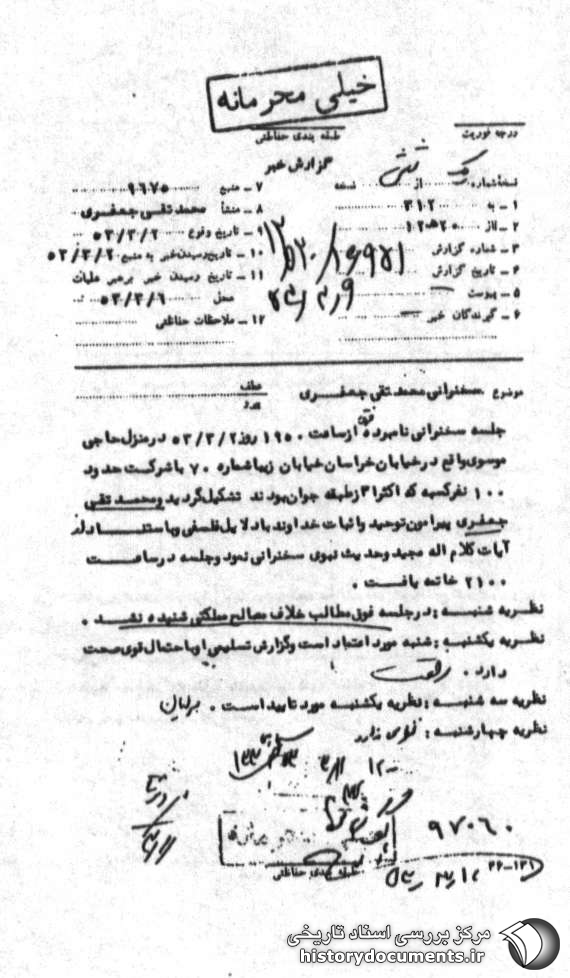 خیلی محرمانه
طبقه بندی حفاظتی
درجه فوریت
گزارش خبر
نسخه شماره یک از شش نسخه
۱ ـ به ۳۱۲
۲ ـ از ۱۲ﻫ۲۰
۳ ـ شماره گزارش
۴ ـ تاریخ گزارش
۵ ـ پیوست ـ
۶ ـ گیرندگان خبر ـ
۷ ـ منبع ۹۶۷۵
۸ ـ منشأ محمد تقی جعفری
۹ ـ تاریخ وقوع ۵۳/۳/۲
۱۰ ـ تاریخ رسیدن خبر به منبع ۵۳/۳/۲
۱۱ ـ تاریخ رسیدن خبر برهبر عملیات
محل ۵۳/۳/۶
۱۲ ـ ملاحظات حفاظتی
موضوع سخنرانی محمد تقی جعفری
عطف
پیرو
جلسه سخنرانی نامبرده فوق از ساعت ۱۹۵۰ روز ۵۳/۳/۲ در منزل حاجی
موسوی واقع در خیابان خراسان خیابان زیبا شماره ۷۰ با شرکت حدود
۱۰۰ نفر کسبه که اکثرا از طبقه جوان بودند تشکیل گردید و محمد تقی
جعفری پیرامون توحید و اثبات خداوند با دلایل فلسفی و با استناد از
آیات کلام اله مجید و حدیث نبوی سخنرانی نمود و جلسه در ساعت
۲۱۰۰ خاتمه یافت .
نظریه شنبه : در جلسه فوق مطالب خلاف مصالح مملکتی شنیده نشد .
نظریه یکشنبه : شنبه مورد اعتماد است و گزارش تسلیمی او با احتمال قوی صحت
دارد .
نظریه سه شنبه : نظریه یکشنبه مورد تایید است .
نظریه چهارشنبه : نظری ندارد
۹۷۰۶۰
طبقه بندی حفاظتی
۲۲-۱۳۱
مرکز بررسی اسناد تاریخی
historydocuments.ir